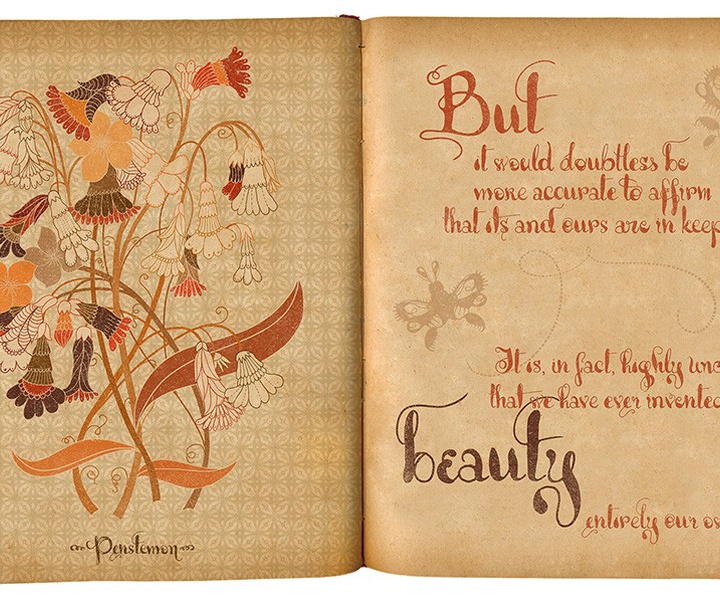 Penstemon
But
it would doubtless be
more accurate to affirm
that its and ours are in keep
It is, in fact, highly unc
that we have ever invented
beauty
entirely our ow